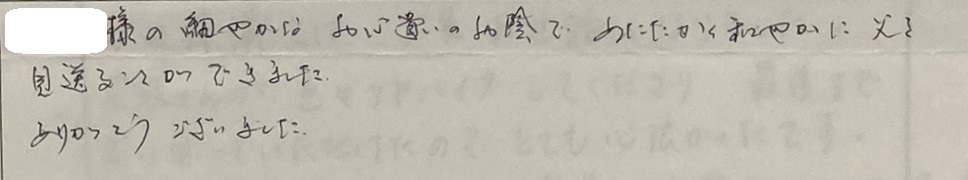 様の細やかなお心遣いのお陰で あたたかく和やかに父を
見送ることができました。
ありがとうございました。